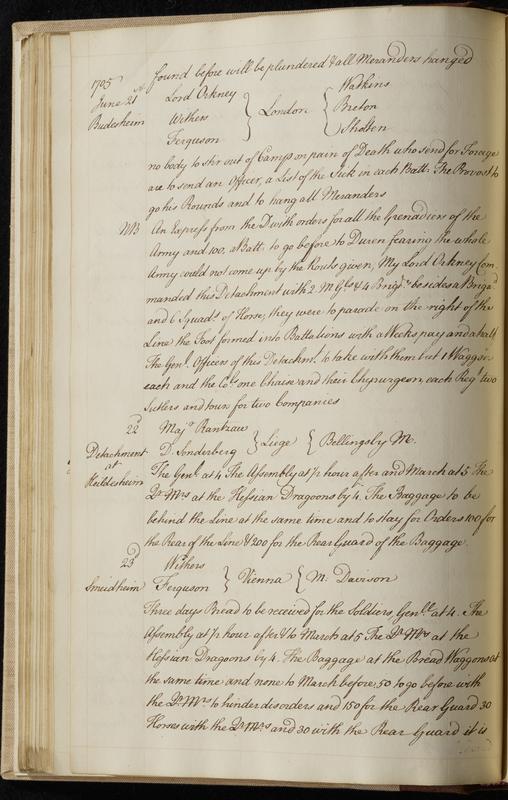 found before will be plundered & all Meranders hanged
1705
June 21st Lord Orkney Watkins
Budesheim Withers London Breton
Ferguson Sholten
no body to stir out of Camp on pain of Death who send for Forage
are to send an Officer, a List of the Sick in each Batt: The Provost to
go his Rounds and to hang all Meranders
NB An Express from the D with orders for all the Grenadiers of the
Army and 100. a Batt. to go before to Duren fearing the whole
Army could not come up by the Routs given, My Lord Orkney Com
manded this Detachment with 2 M Gls & 4 Brigrs besides a Brigad
and 6 Squads of Horse, they were to parade on the right of the
Line the Foot formed into Battalions with a Weeks pay and a half
The Genl. Officers of this Detachmt. to take with them but 1 Waggon
each and the Cols one Chaise and their Chyrurgeon, each Regt two
Sutlers and tours for two Companies
22 Majr Rantzau
Detachment D. Sonderberg Liege Bellingsby M.
at
Heildesheim The Genl at 4 The Assembly at ½ hour after and March at 5 The
Qr Mrs at the Hessian Dragoons by 4. The Baggage to be
behind the Line at the same time and to stay for Orders 100 for
the Rear of the Line & 200 for the Rear Guard of the Baggage.
23 Withers
Smeidheim Ferguson Vienna M. Davison
Three days Bread to be received for the Soldiers, Genll at 4. The
Assembly at ½ hour after & to March at 5 The Qr Mrs at the
Hessian Dragoons by 4. The Baggage at the Bread Waggons at
the same time and none to March before, 50 to go before with
the Qr Mrs to hinder disorders and 150 for the Rear Guard 30
Horses with the Qr Mrs and 30 with the Rear Guard it is